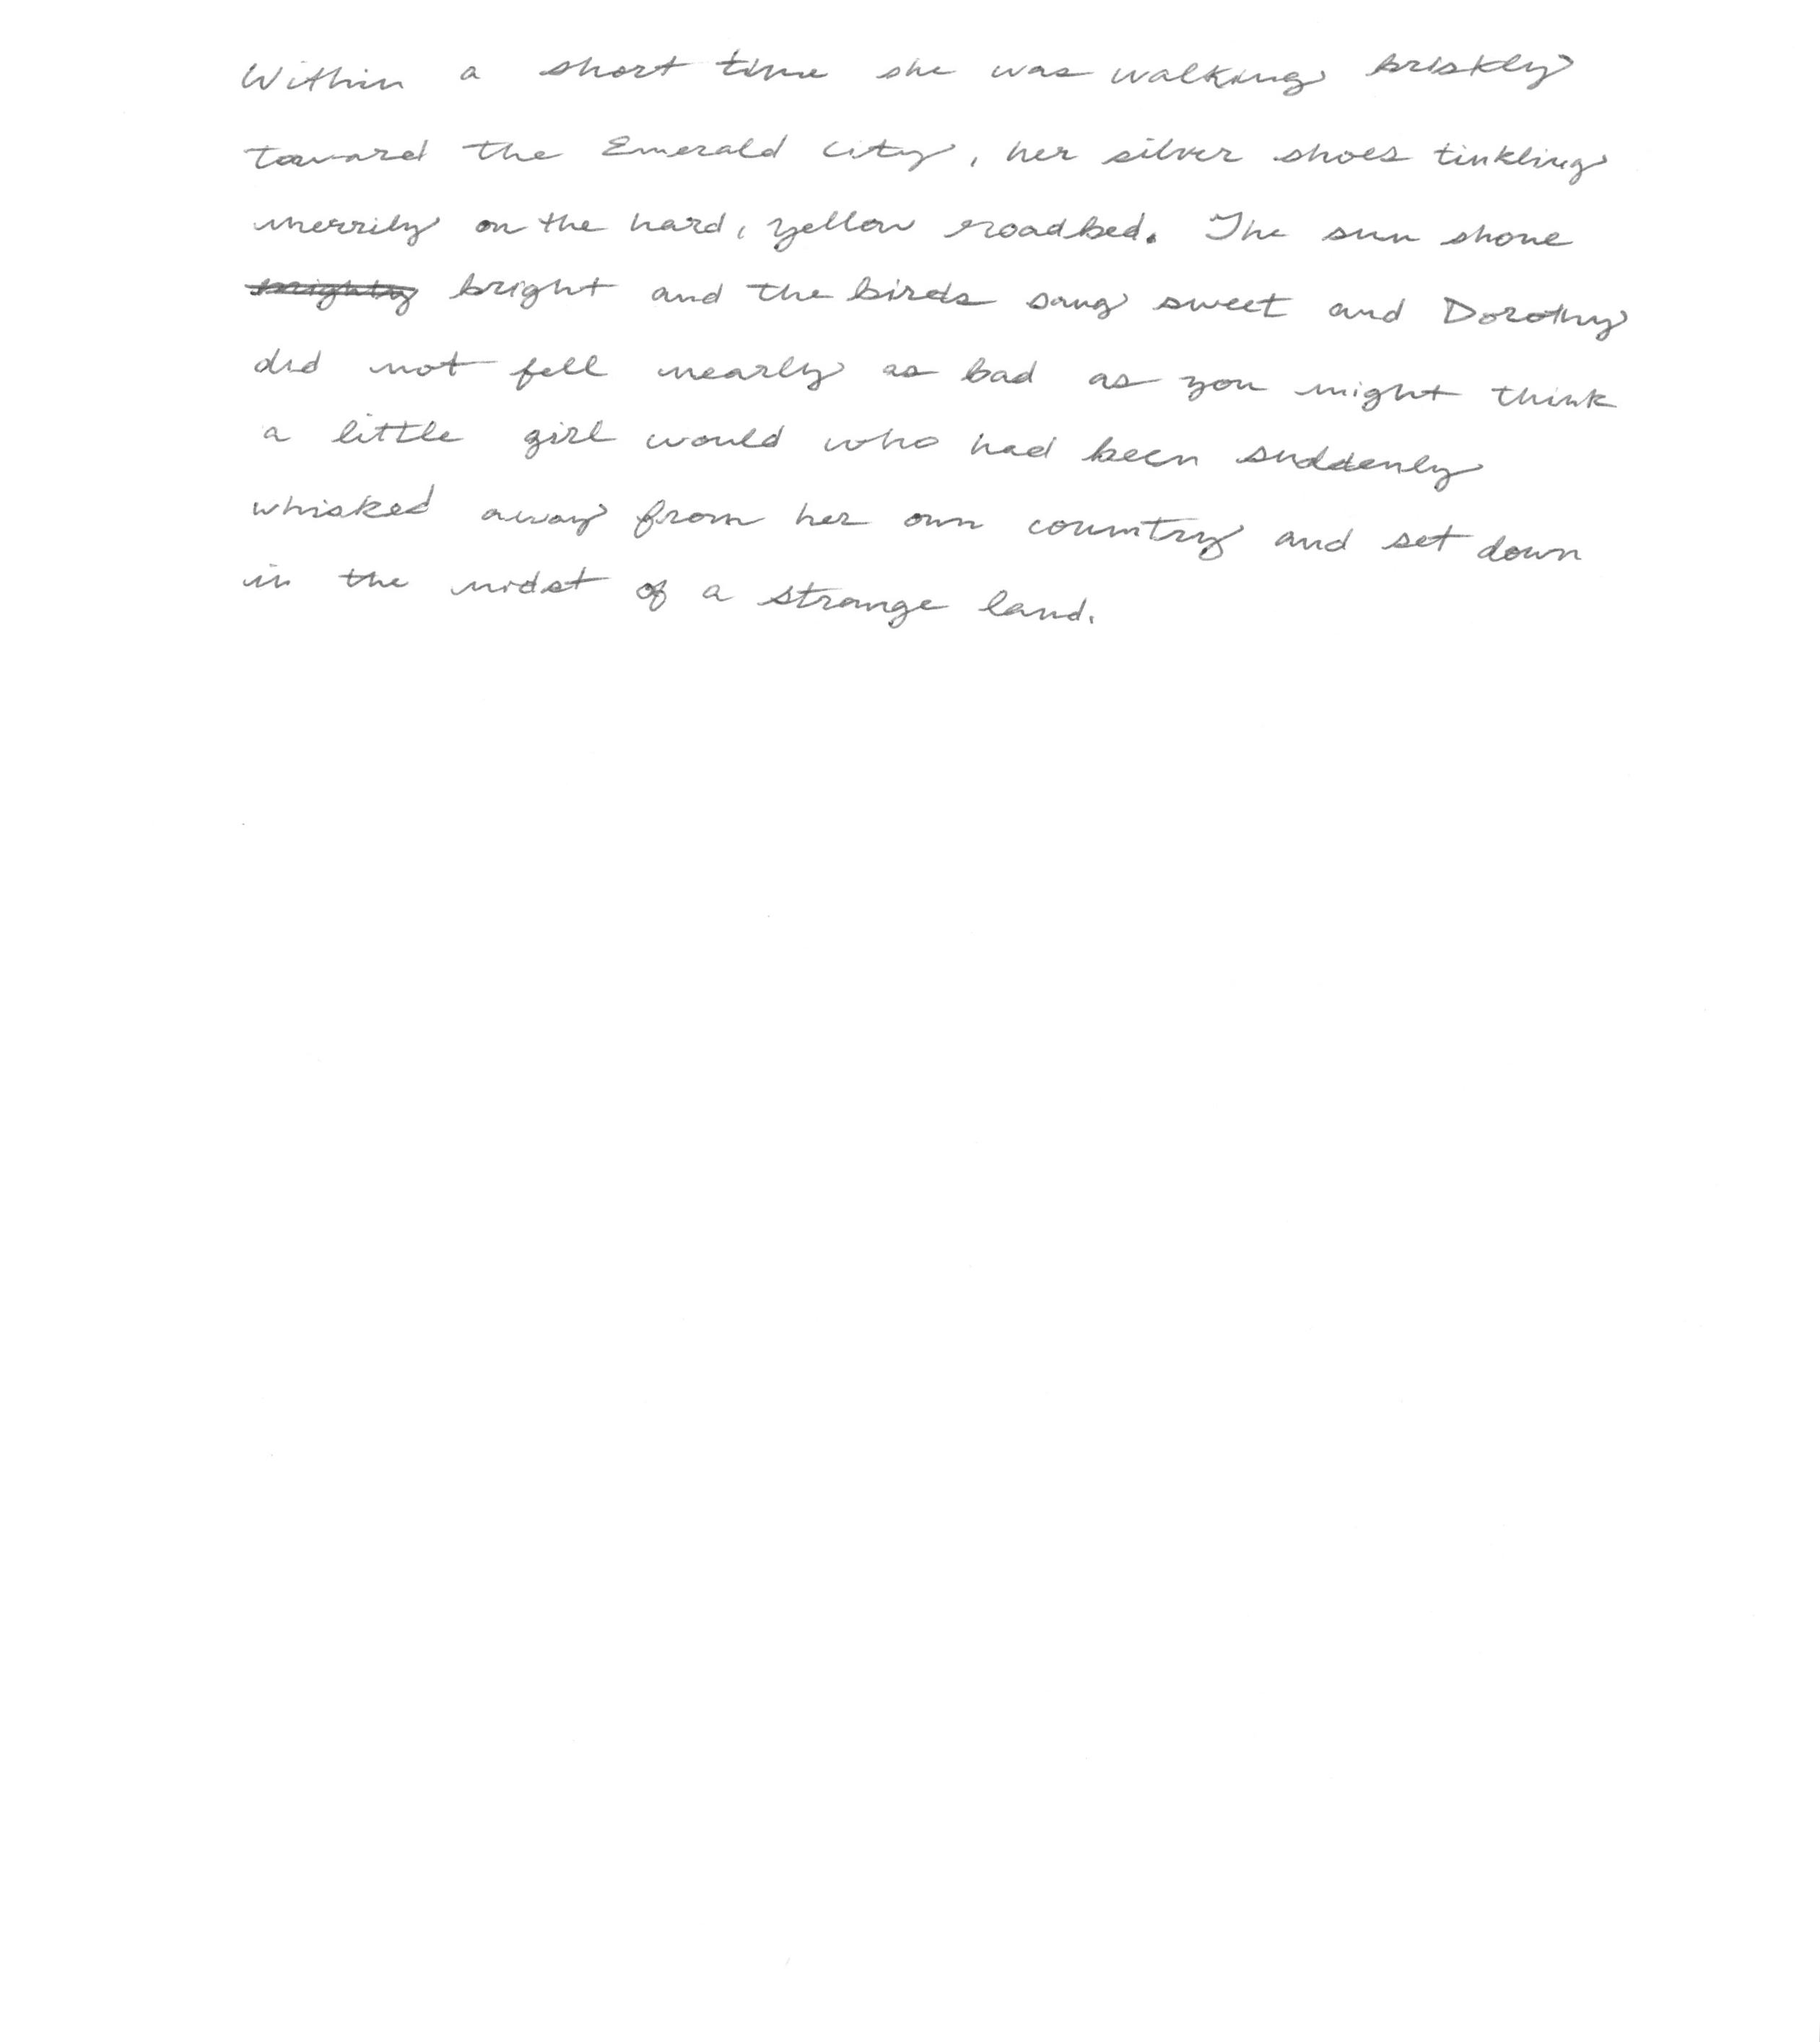 Within a short time she was walking briskly
toward the Emerald City, her silver shoes tinkling
merrily on the hard, yellow roadbed. The sun shone
bright and the birds sang sweet and Dorothy
did not fell nearly as bad as you might think
a little girl would who had been suddenly
whisked away from her own country and set down
in the midst of a strange land.